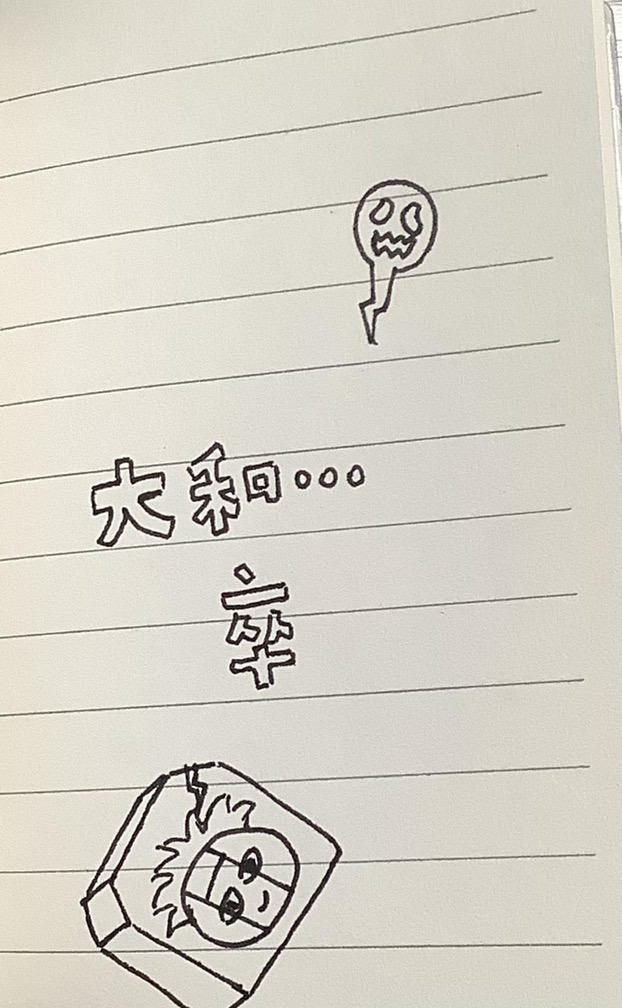 大和...
卒